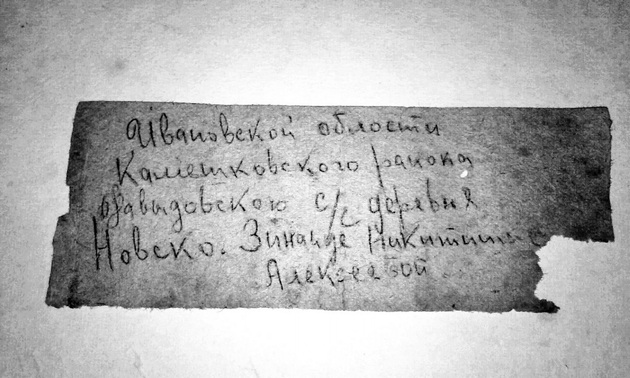 Ивановской области
Камешковского района
Давыдовского с/с деревня
Новско. Зинаиде Никитичне
Алексеевой